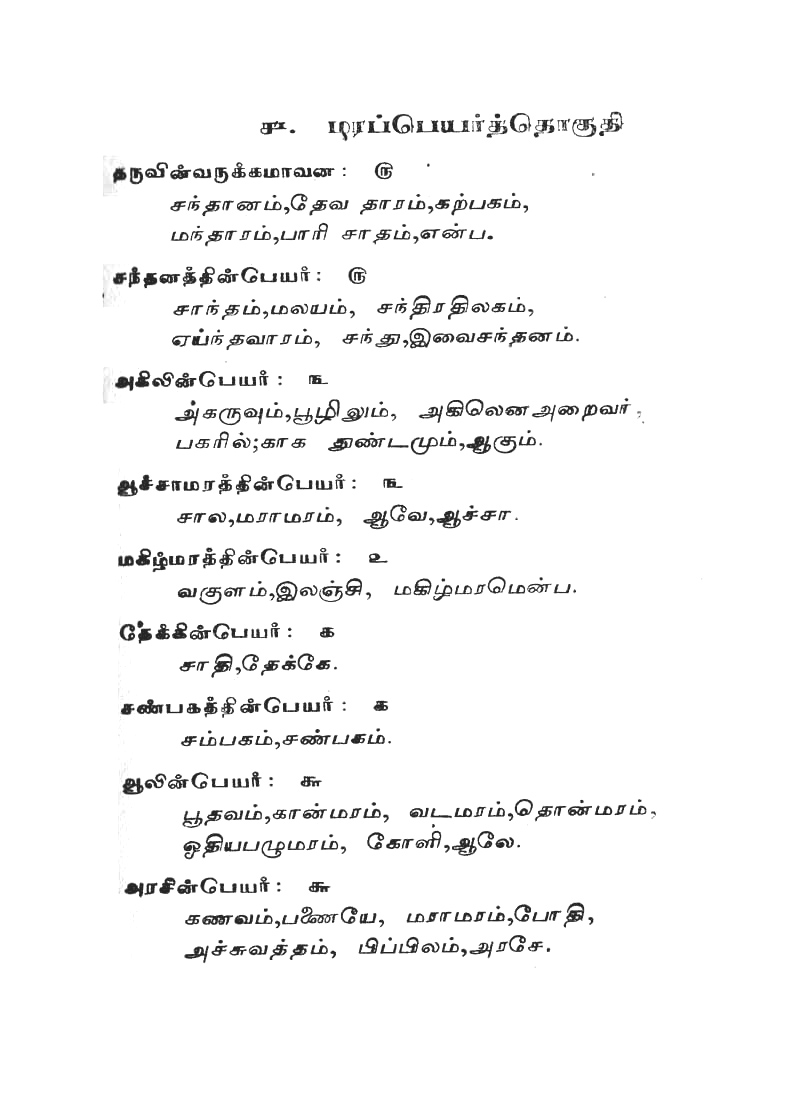 ௪. மரப்பெயர்த்தொகுதி
தருவின்வருக்கமாவன: ௫
சந்தானம்,தேவ தாரம்,கற்பகம்,
மந்தாரம்,பாரி சாதம்,என்ப.
சந்தனத்தின்பெயர்: ௫
சாந்தம்,மலயம், சந்திரதிலகம்,
ஏய்ந்தவாரம், சந்து,இவைசந்தனம்.
அகிலின்பெயர்: ௩
அ்கருவும்,பூழிலும், அகிலெனஅறைவர்,
பகரில்;காக துண்டமும்,ஆகும்.
ஆச்சாமரத்தின்பெயர்: ௩
சால,மராமரம், ஆவே,ஆச்சா.
மகிழ்மரத்தின்பெயர்: ௨
வகுளம்,இலஞ்சி, மகிழ்மரமென்ப.
தேக்கின்பெயர்: ௧
சாதி,தேக்கே.
சண்பகத்தின்பெயர்: ௧
சம்பகம்,சண்பகம்.
ஆலின்பெயர்: ௬
பூதவம்,கான்மரம், வடமரம்,தொன்மரம்,
ஓதியபழுமரம், கோளி,ஆலே.
அரசின்பெயர்: ௬
கணவம்,பணையே, மராமரம்,போதி,
அச்சுவத்தம், பிப்பிலம்,அரசே.